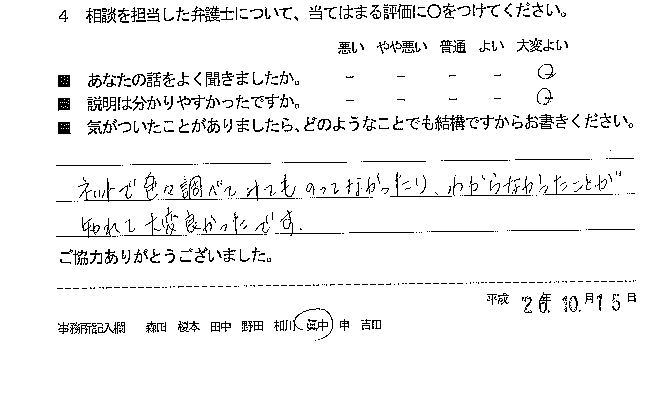 4 相談を担当した弁護士について、当てはまる評価に○をつけてください。
悪い やや悪い 普通 よい 大変よい
■ あなたの話をよく聞きましたか。 - - - - ○
■ 説明は分かりやすかったですか。 - - - - ○
■ 気がついたことがありましたら、どのようなことでも結構ですからお書きください。
ネットで色々調べてみてものってなかったり、わからなかったことが
知れて大変良かったです。
ご協力ありがとうございました。
平成 26年 10月 15日
事務所記入欄 森田 榎本 田中 野田 和川 眞中 申 吉田